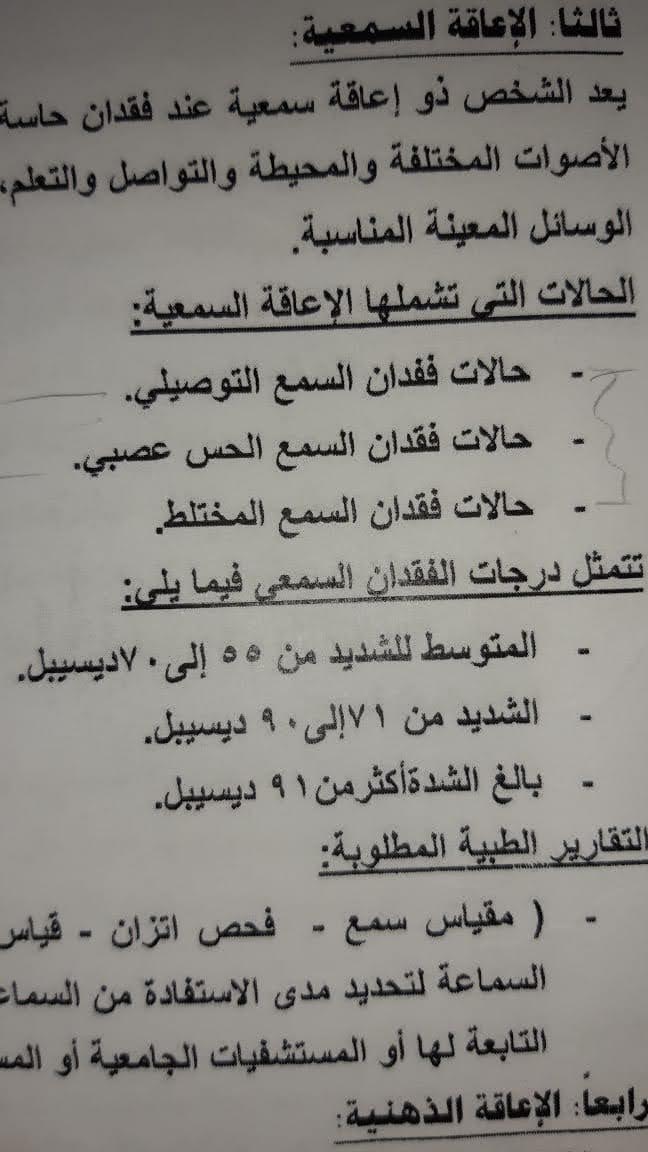 ثالثا: الإعاقة السمعية:
يعد الشخص ذو إعاقة سمعية عند فقدان حاسة
الأصوات المختلفة والمحيطة والتواصل والتعلم،
الوسائل المعينة المناسبة.
الحالات التي تشملها الإعاقة السمعية:
- حالات فقدان السمع التوصيلي.
- حالات فقدان السمع الحس عصبي.
- حالات فقدان السمع المختلط.
تتمثل درجات الفقدان السمعي فيما يلي:
- المتوسط للشديد من ٥٥ إلى ٧٠ديسيبل.
- الشديد من ٧١إلى ٩٠ ديسيبل.
- بالغ الشدةأكثرمن ٩١ ديسيبل.
التقارير الطبية المطلوبة:
- ( مقياس سمع - فحص اتزان - قياس
السماعة لتحديد مدى الاستفادة من
التابعة لها أو المستشفيات الجامعية أو
رابعاً: الإعاقة الذهنية: